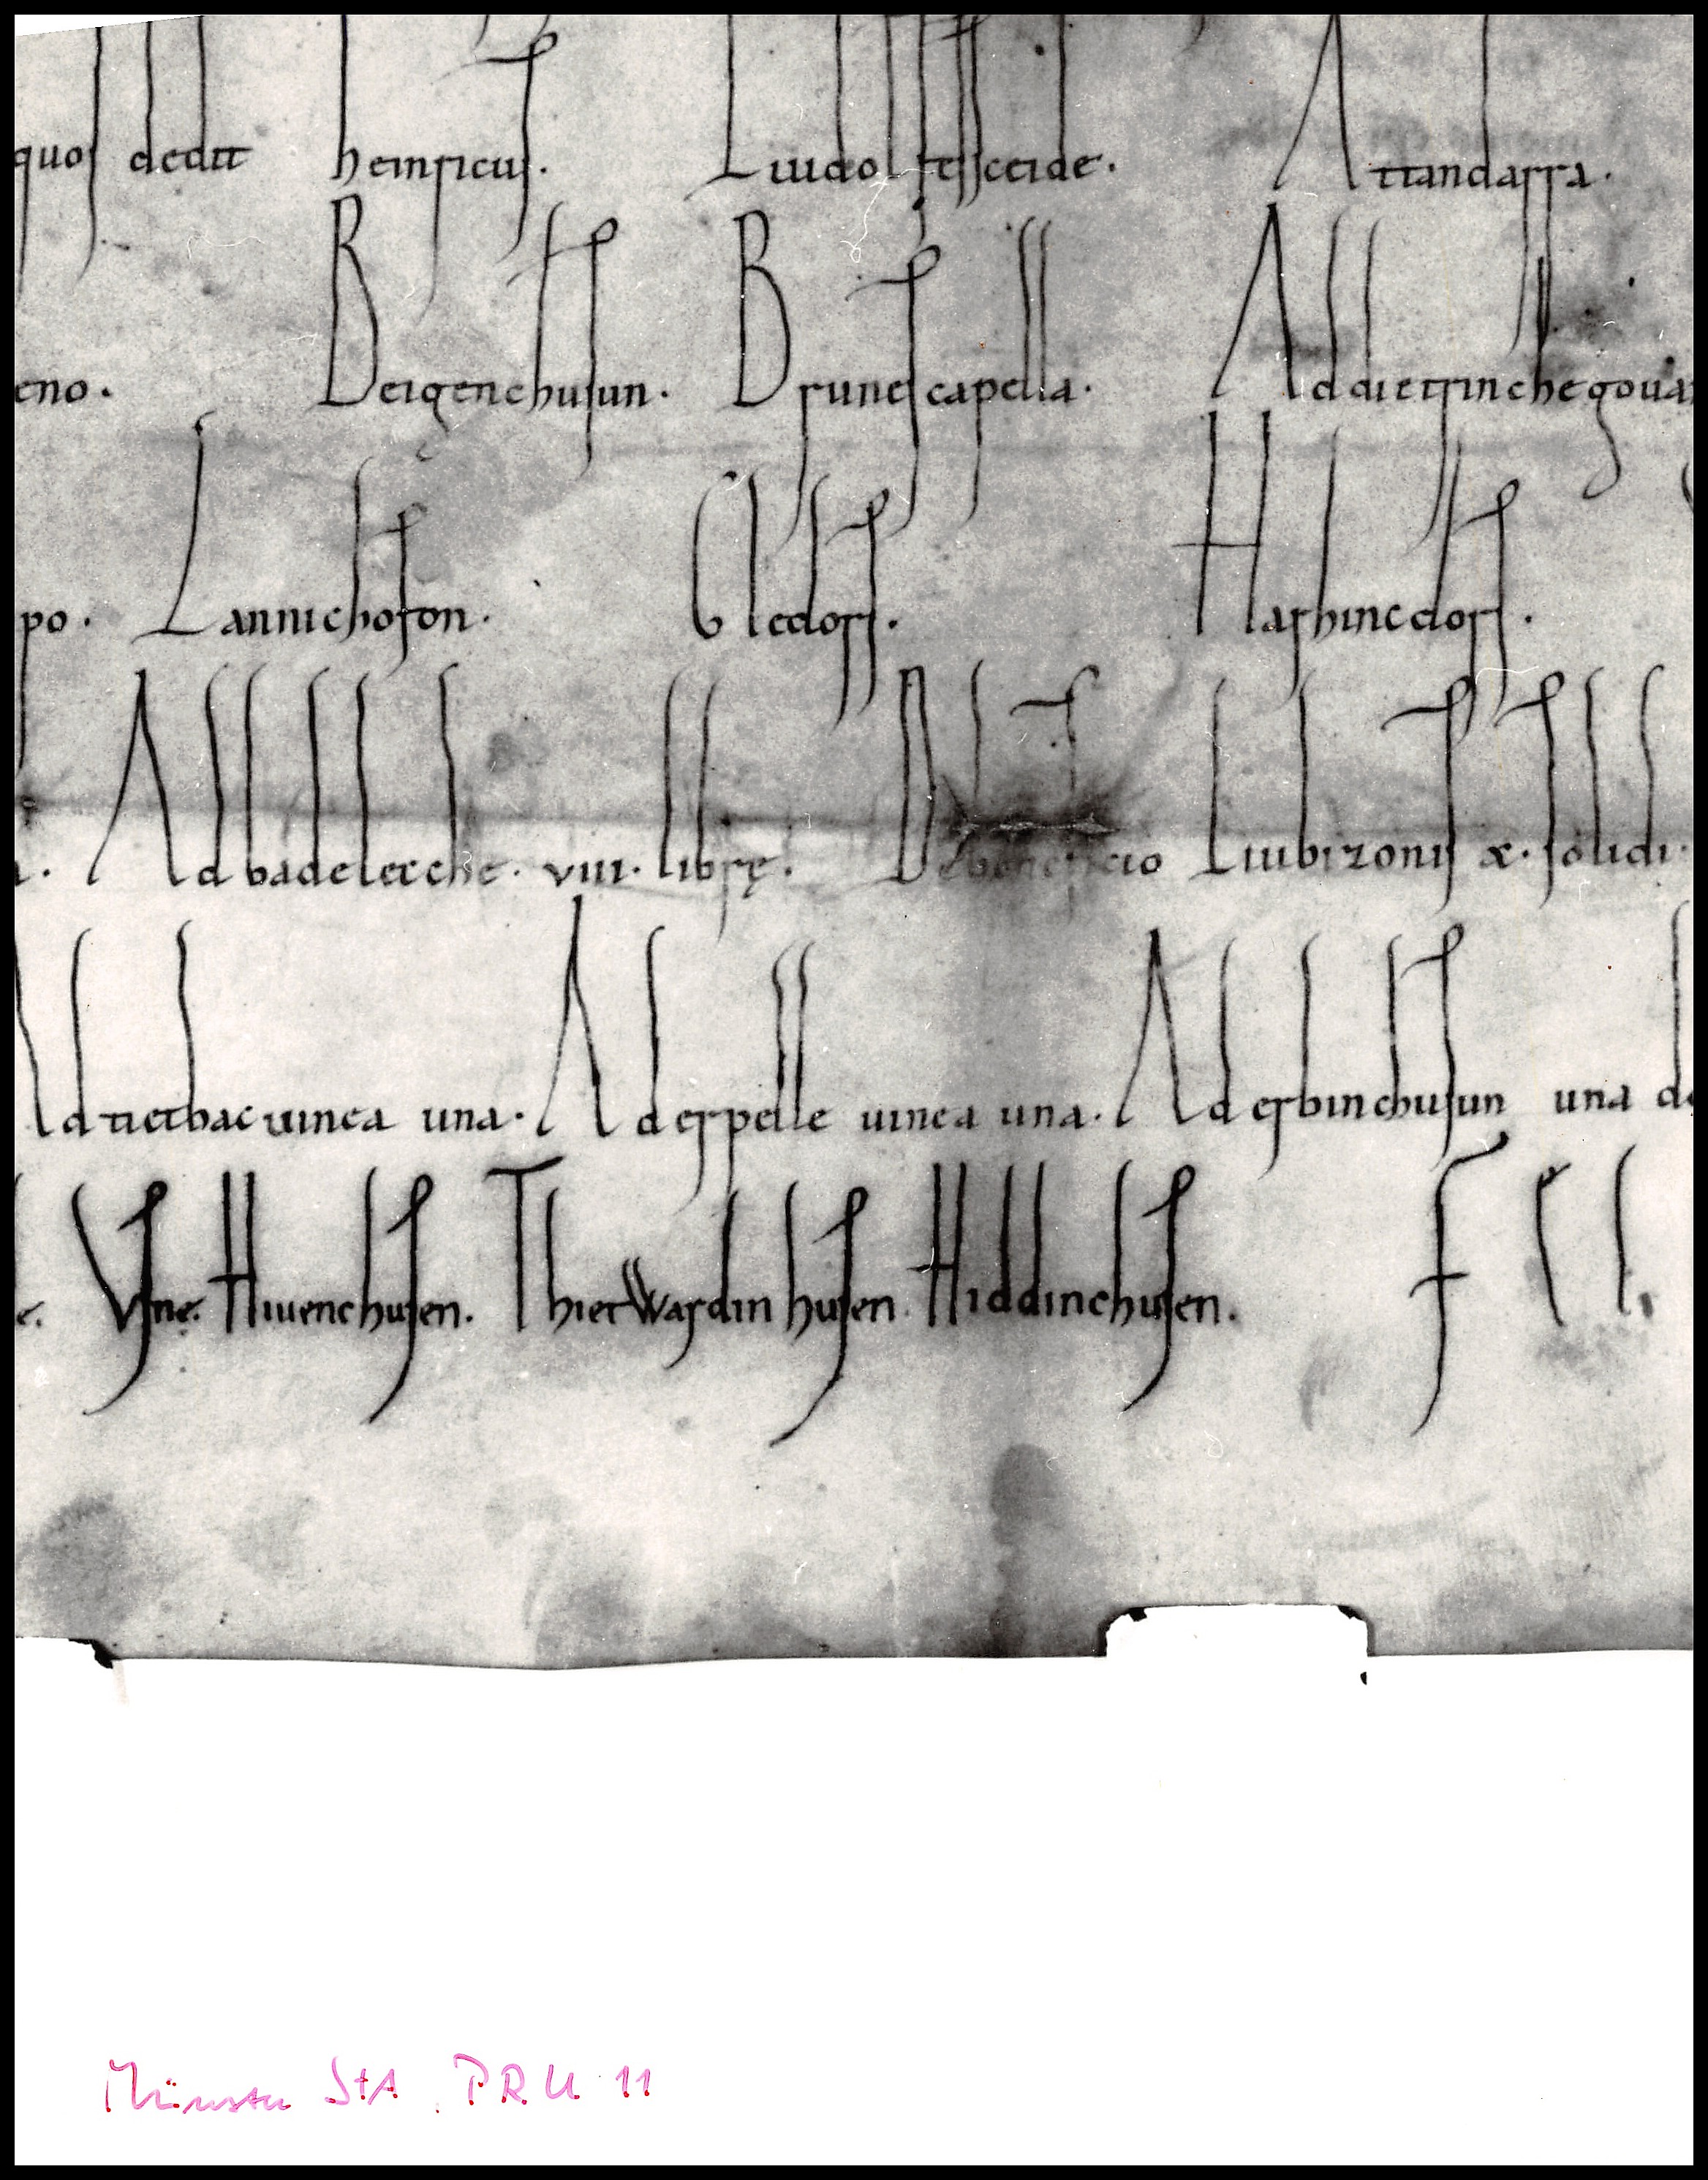 quos dedit heinricus. Liudolfesceide. Attandarra.
eno. Beigenchusun. Brunescapella. Ad dietrinchegouua
po. Lannichoson. Cledorf. Harhincdorf.
Ad badelecche. viii. librę. De beneficio Liubizonis x. solidi.
Ad tietbac uinea una. Ad erpelle uinea una. Ad erbinchusun una de
e. Vfne. Hiuenchusen. ThierWardinhusen. Hiddinchusen. F
Münster StA. PRU 11